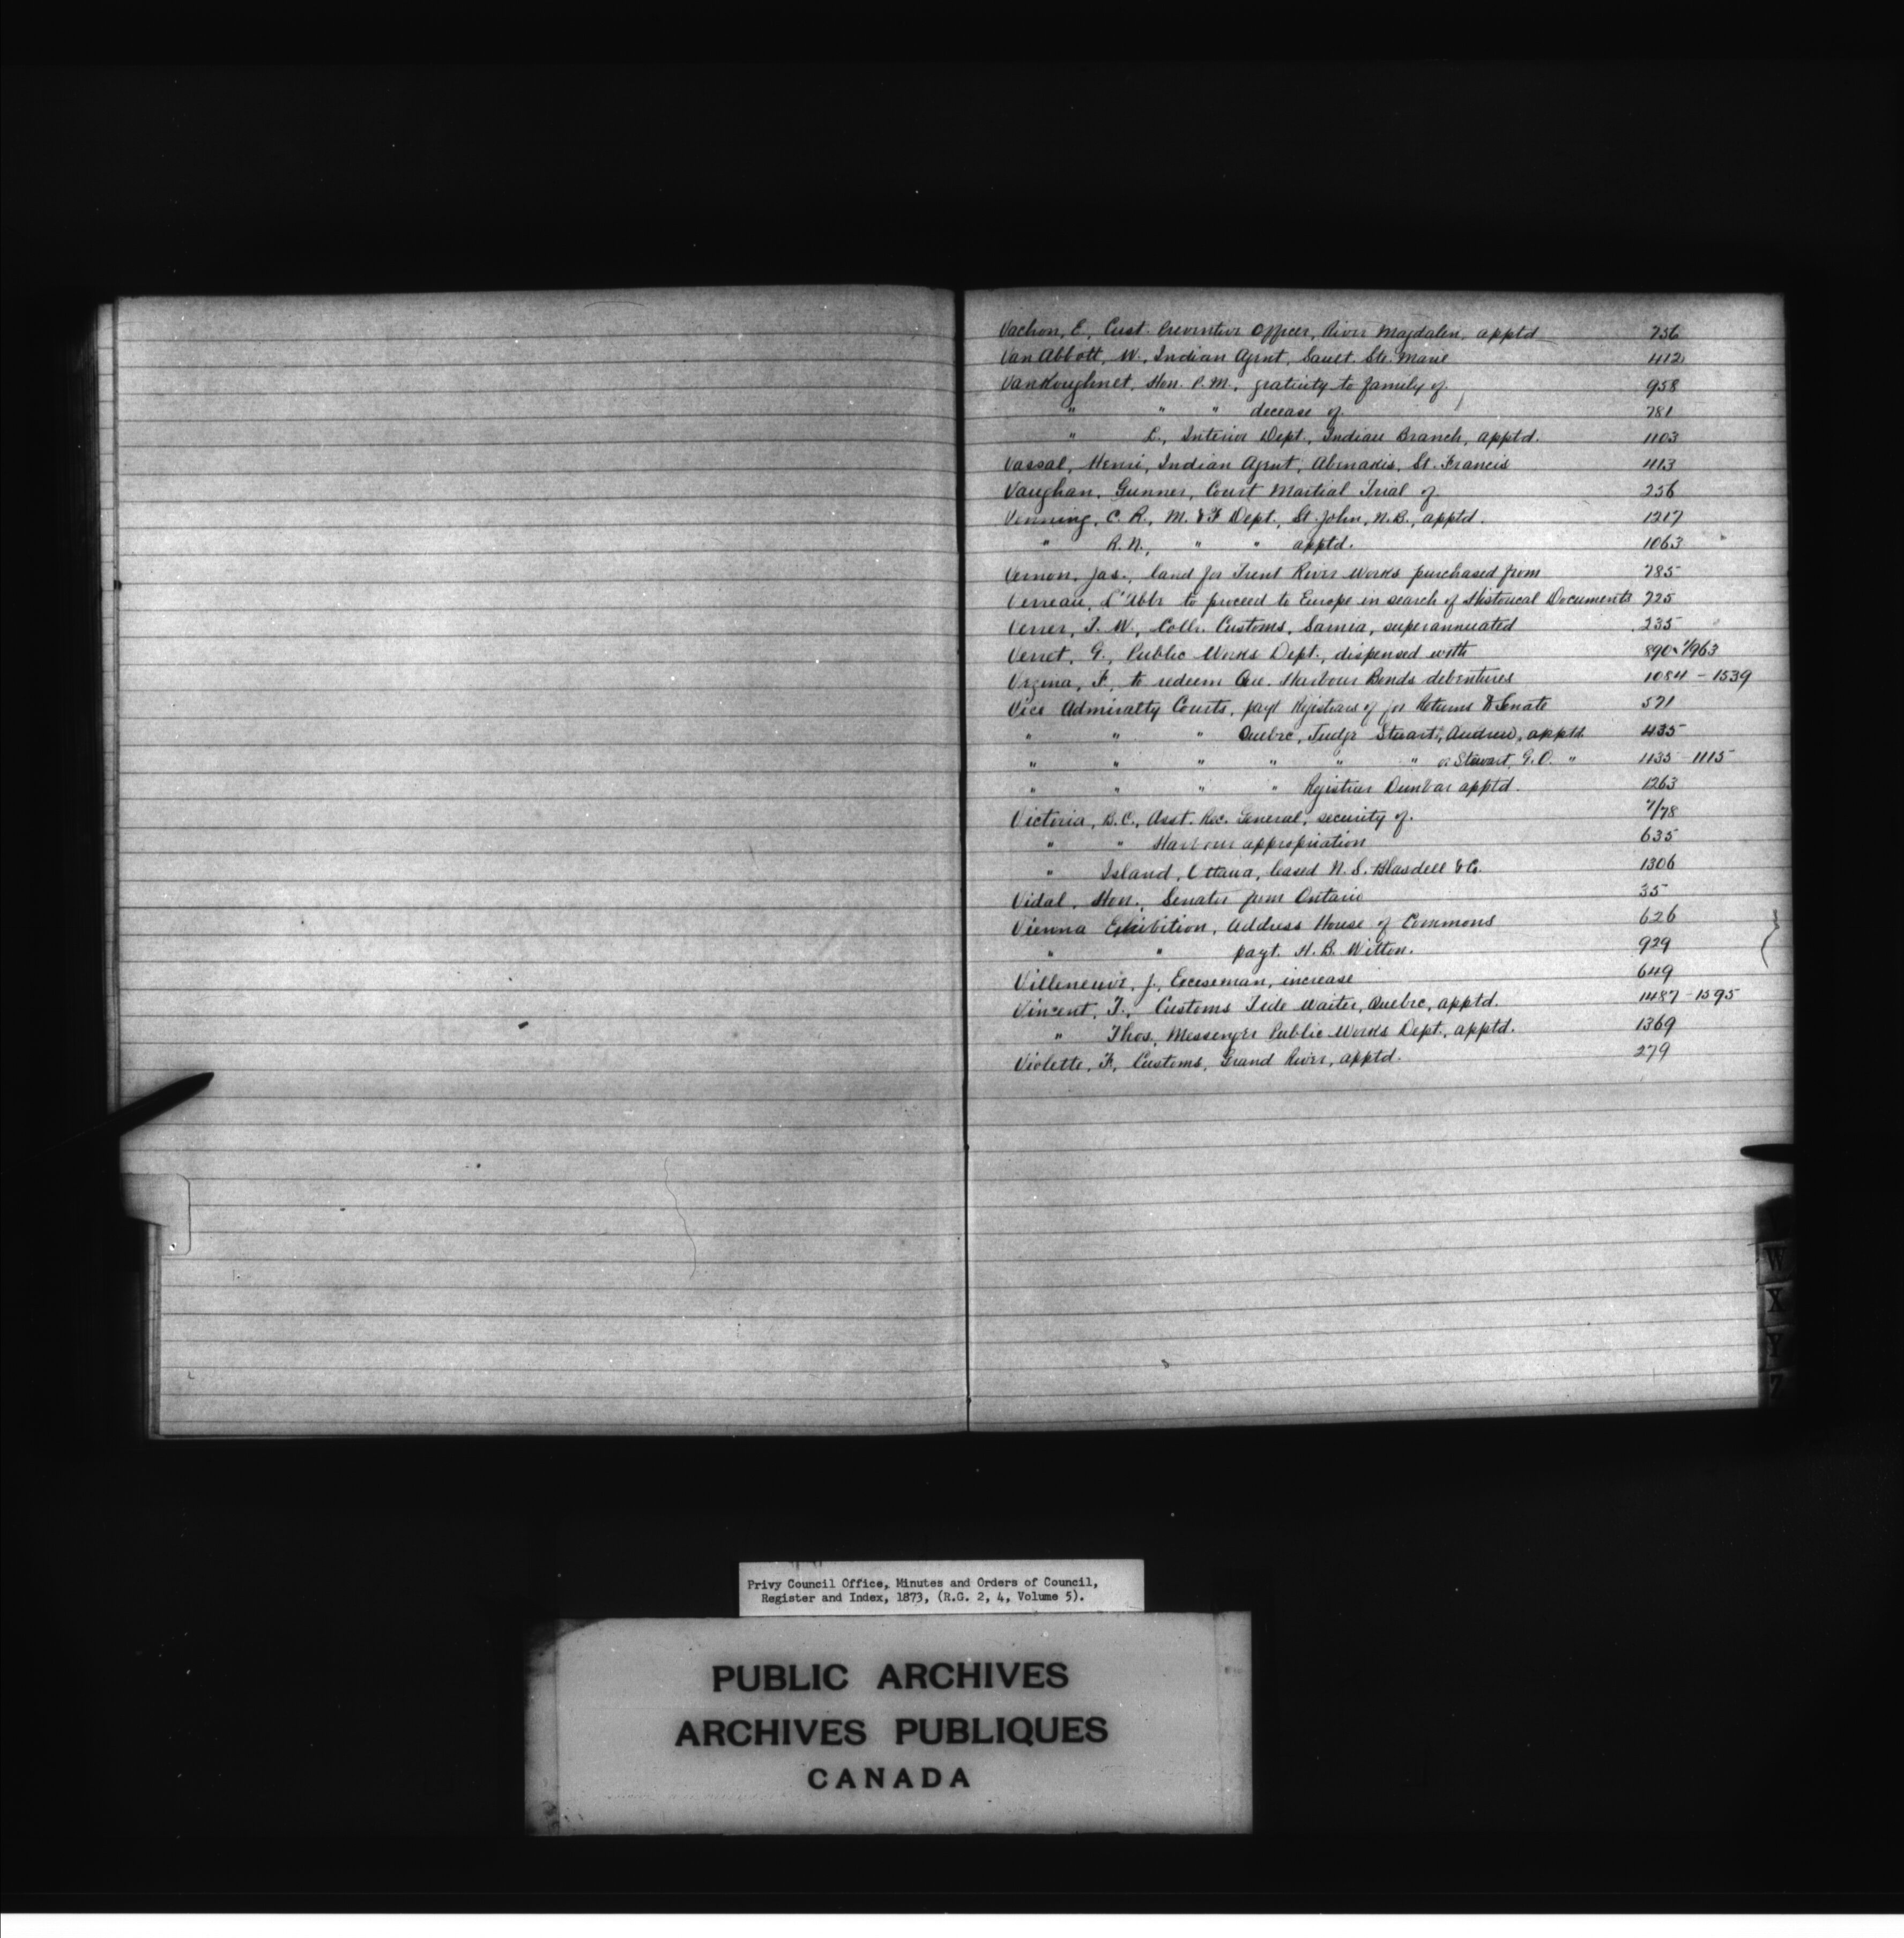 Vachon, E., Cust. Preventive Officer, River Magdalen, apptd 756
Van Abbott, W., Indian Agent, Sault Ste. Marie 412
VanKoughnet, Hon. P. M., gratuity to family of 958
" " " decease of 781
" L., Interior Dept., Indian Branch, apptd. 1103
Vassal, Henri, Indian Agent, Abenakis, St. Francis 413
Vaughan, Gunner, Court Martial Trial of 256
Venning, C. R., M. & F Dept., St. John, N.B., apptd. 1217
" R. N., " " apptd. 1063
Vernon, Jas., land for Trent River Works purchased from 785
Verreau, L'Abbe to proceed to Europe in search of Historical Documents 725
T. W., Collr. Customs, Sarnia, superannuated 235
Verret, G., Public Works Dept., dispensed with 890 1/963
F., to redeem Que. Harbour Bonds debentures 1084 - 1539
Vice Admiralty Courts, payt Registrars of for Returns to Senate 571
" " " Quebec, Judge Stuart, Andrew, apptd. 435
" " " " " " or Stewart, G. O. " 1135 - 1115
" " " " Registrar Dunbar apptd. 1263
Victoria, B.C., Asst. Rec. General, security of. 7/78
" " Harbour appropriation 635
" Island, Ottawa, leased N. S. Blasdell & Co. 1306
Vidal, Hon., Senator from Ontario 35
Vienna Exhibition, Address House of Commons 626
" " payt. H. B. Witton. 929
Villeneuve, J., Exciseman, increase 649
Vincent, T., Customs Tide Waiter, Quebec, apptd. 1487 - 1595
" Thos, Messenger Public Works Dept., apptd. 1369
Violette, F., Customs, Grand River, apptd. 279
W
X
Y
Z
Privy Council Office, Minutes and Orders of Council,
Register and Index, 1873, (R.G. 2, 4, Volume 5).
PUBLIC ARCHIVES
ARCHIVES PUBLIQUES
CANADA